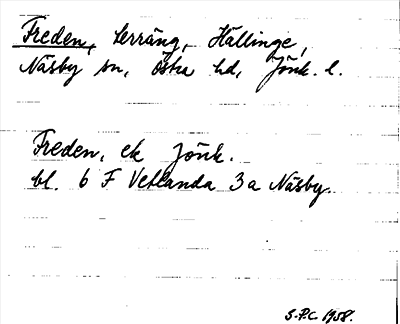 Freden, Serräng, Hällinge,
Näsby sn, Östra hd, Jönk. l.
Freden, ek Jönk.
bl. 6 F Vetlanda 3a Näsby.
S.P.C. 1958.